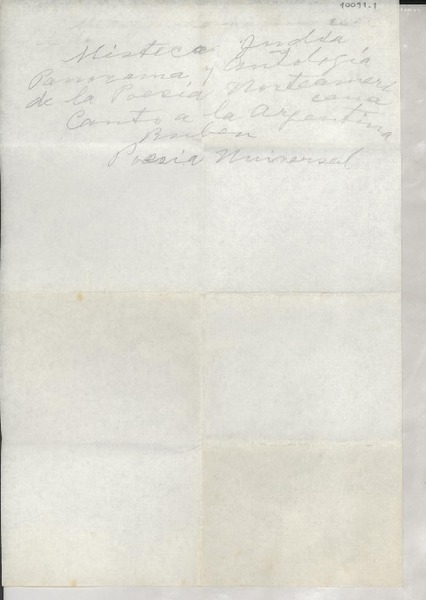 10091.1
Mistica India
Panorama y Antología
de la Poesía Norteameri
cana
Canto a la Argentina
Ruben
Poesía Universal